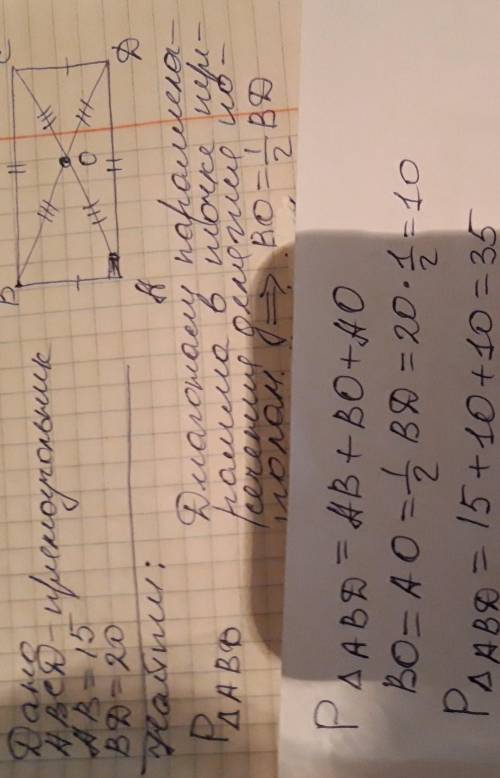 Дано
ABCD - прямоугольник
AB = 15
BD = 20
Найти:
P△ABD
B
C
D
A
O
Диагонали паралела-
рамма в точке пере-
сечения делятся по-
полам. ⇒ BO = 1/2 BD
P△ABD = AB + BO + AO
BO = AO = 1/2 BD = 20 · 1/2 = 10
P△ABD = 15 + 10 + 10 = 35